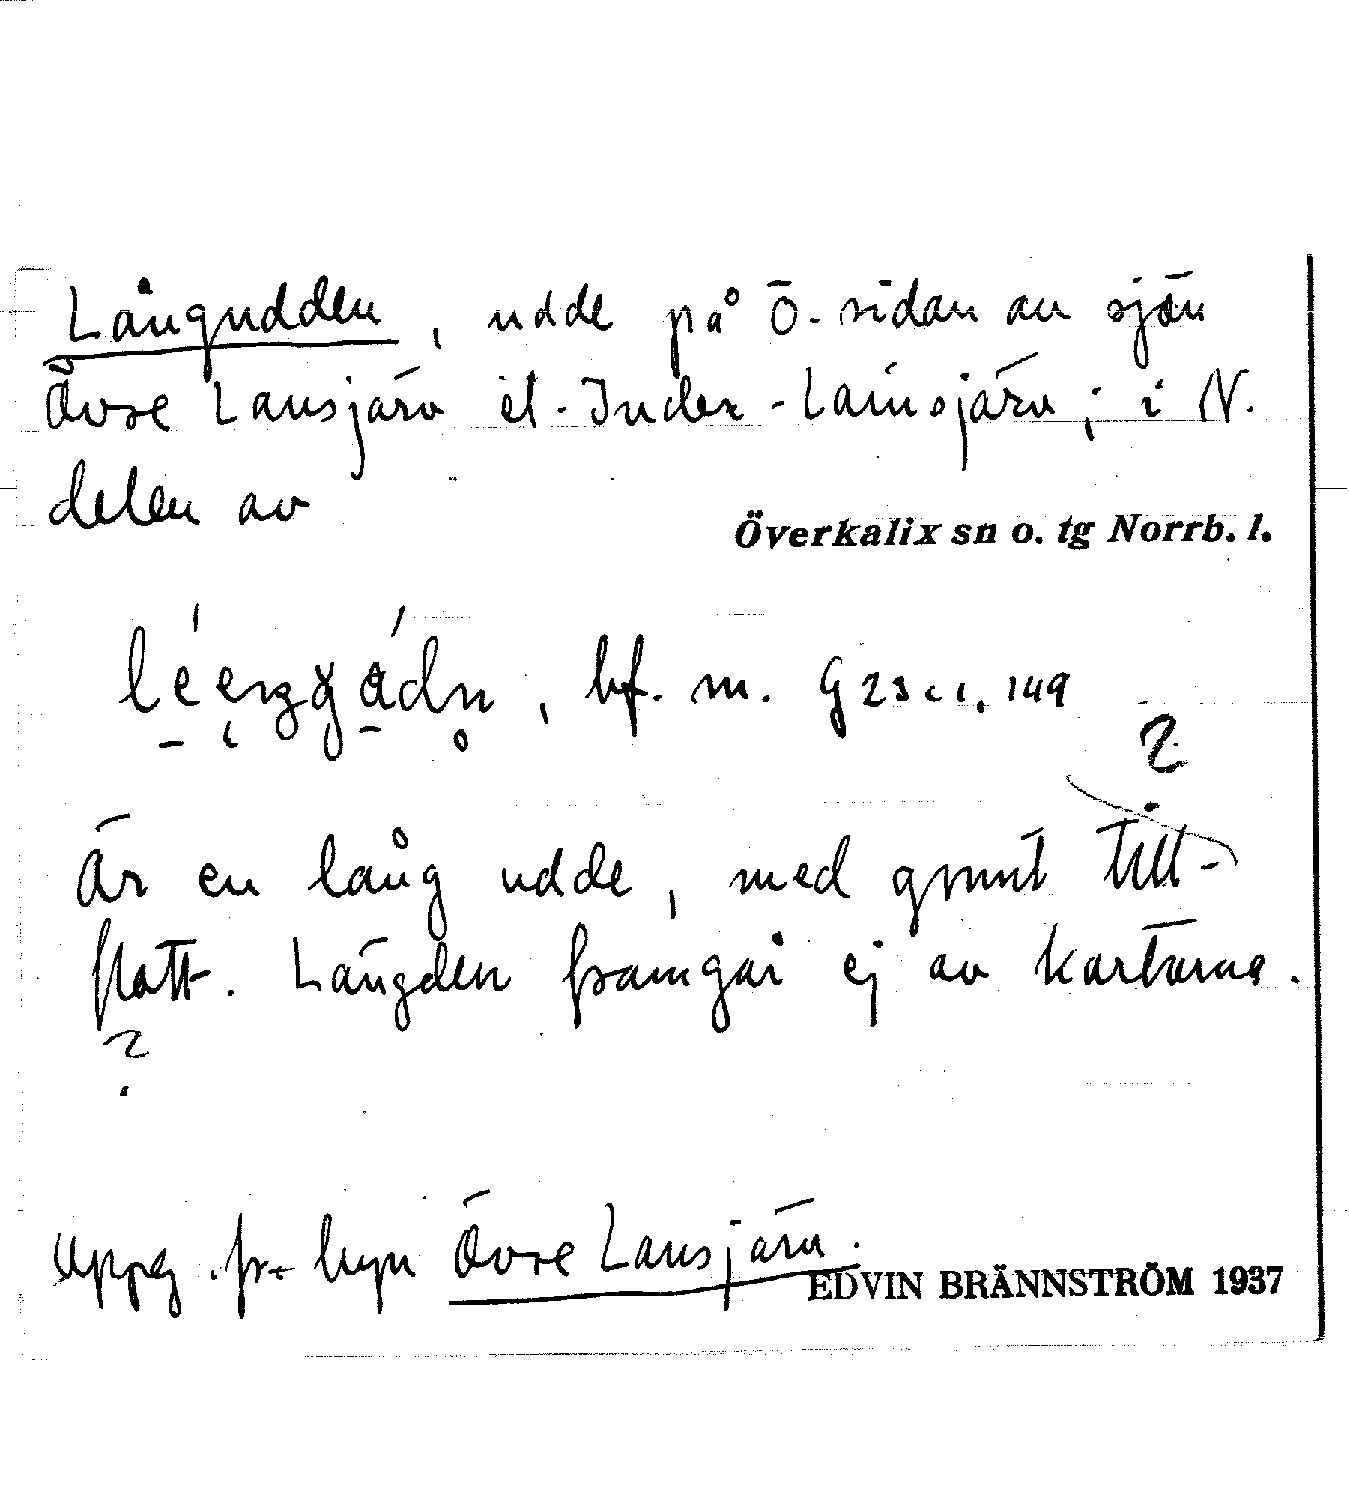 Långudden, udde på Ö. sidan av sjön
Övre Lansjärv el. Inder-Lainsjärv; i N.
delen av
Överkalix sn o. tg Norrb. l.
bf. m. G 23 c 1. 149
?
Är en lång udde, med grunt till-
flott. Längden framgår ej av kartorna.
?
Uppg. fr. byn Övre Lansjärv.
EDVIN BRÄNNSTRÖM 1937